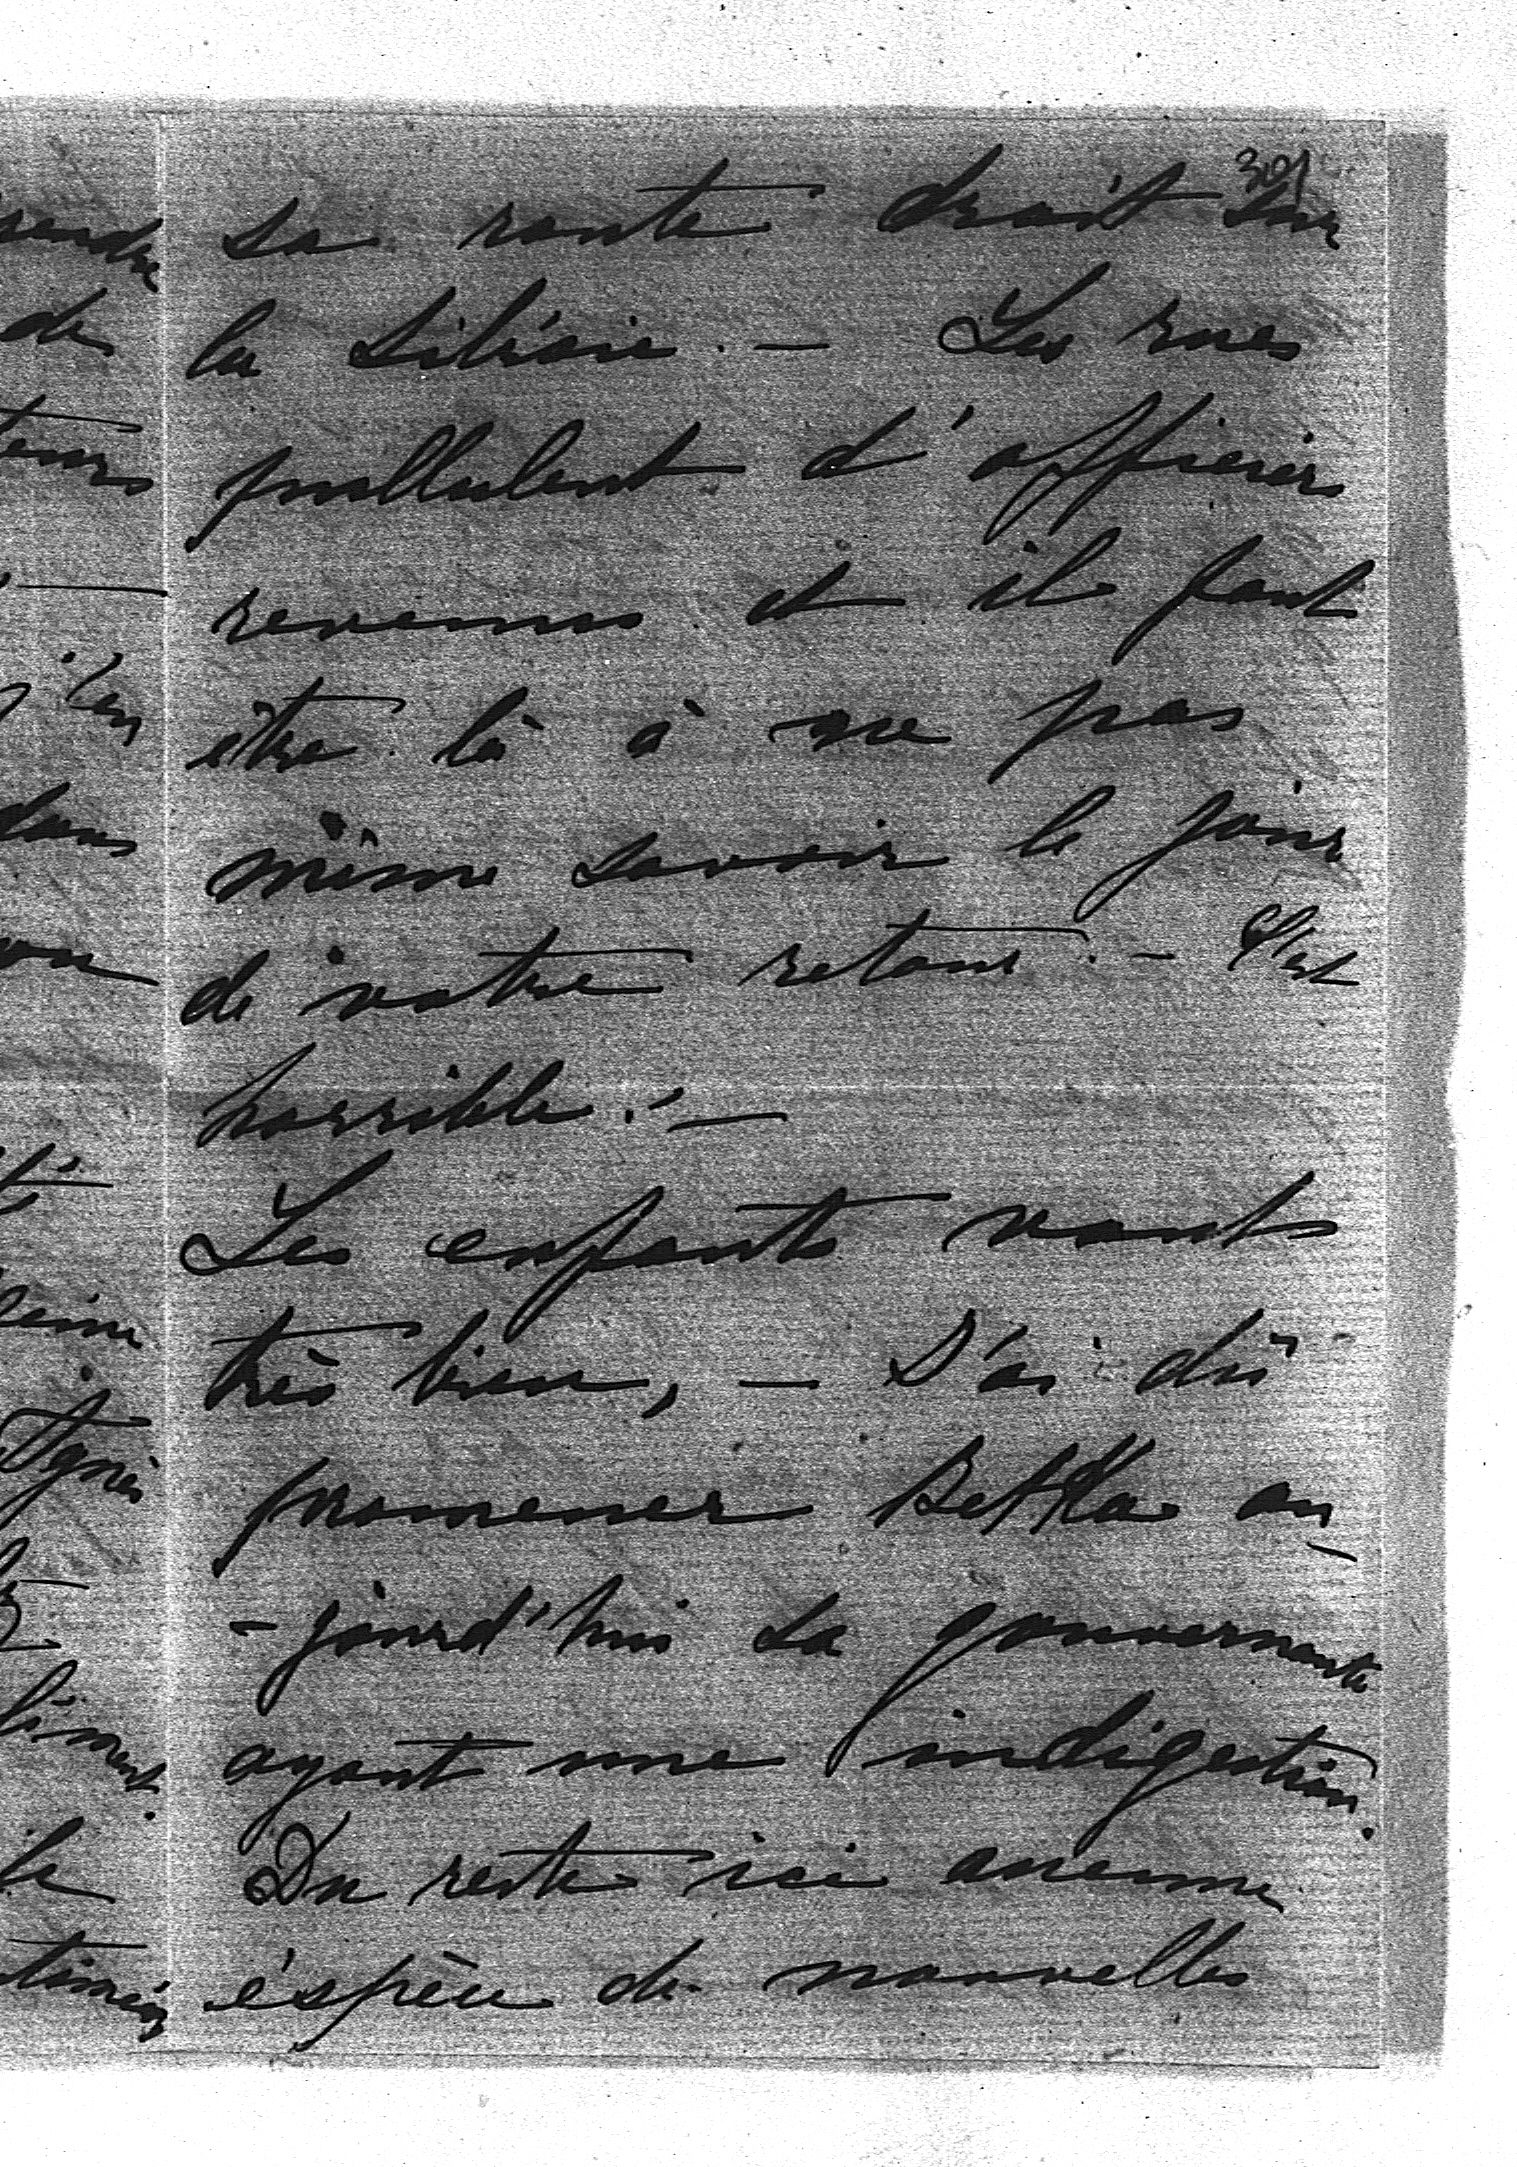 301
sa route droit sur
la Silésie. — Les rues
pullulent d'officiers
revenus et il faut
être là à ne pas
même savoir le jour
de votre retour. — C'est
horrible! —
Les enfants vont
très bien, — J'ai dû
promener au-
-jourd'hui sa gouvernante
ayant une indigestion.
Du reste ici aucune
éspèce de nouvelles
de
dans
Agnès
le